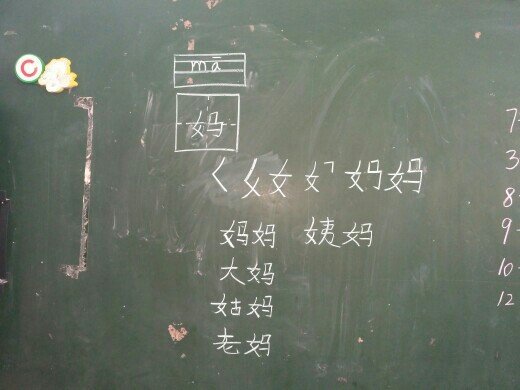 mā
妈
𡿨 乂 女 妈 妈
妈妈 姨妈
大妈
姑妈
老妈
7
3
8
9
10
12